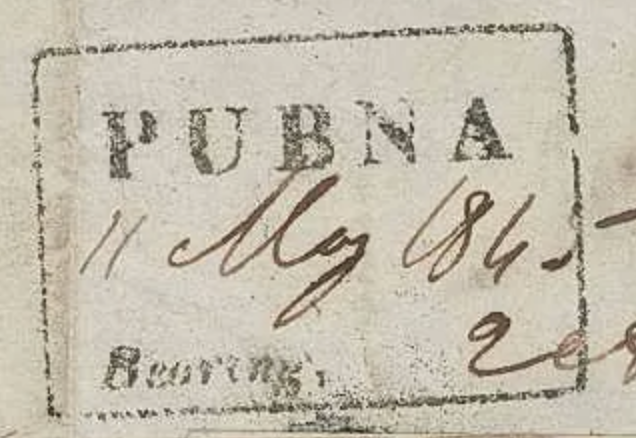 PUBNA
11 May 1845
Bearing,